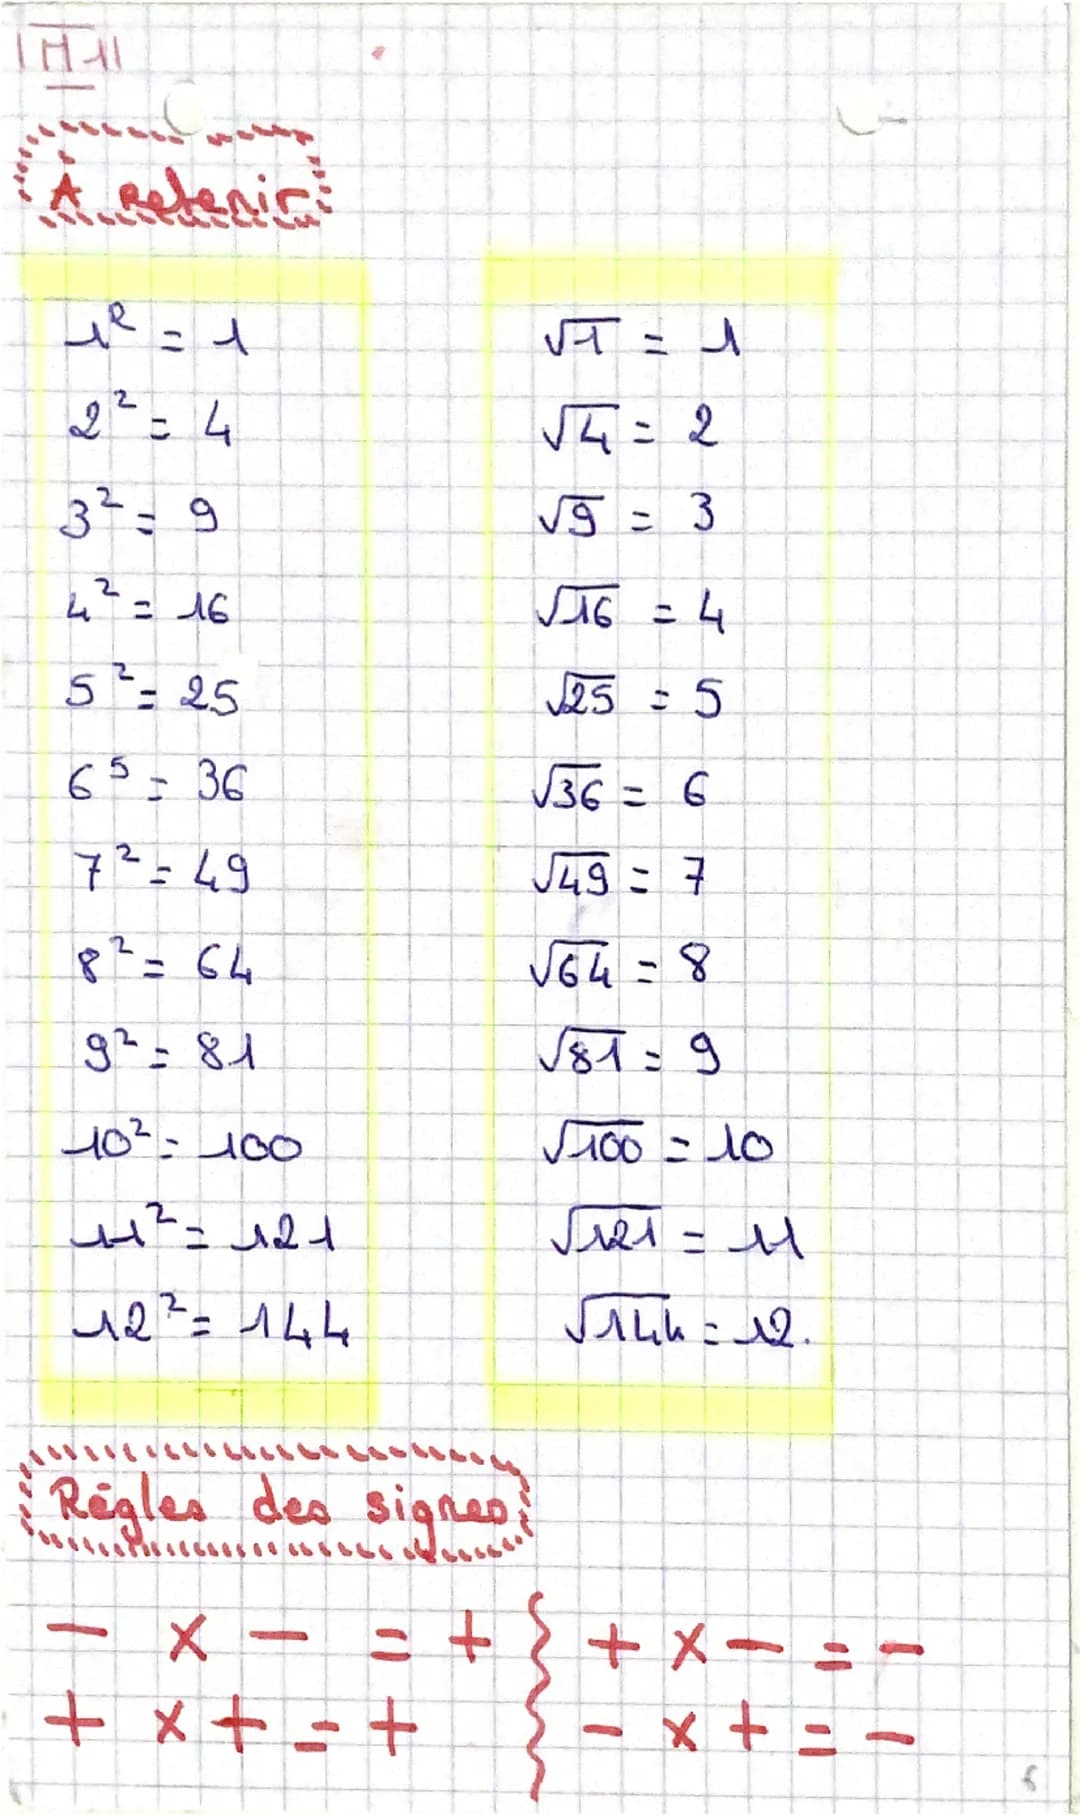 À Retenir
1² = 1
2² = 4
3² = 9
4² = 16
5² = 25
6⁵ = 36
7² = 49
8² = 64
9² = 81
10² = 100
11² = 121
12² = 144
√1 = 1
√4 = 2
√9 = 3
√16 = 4
√25 = 5
√36 = 6
√49 = 7
√64 = 8
√81 = 9
√100 = 10
√121 = 11
√144 = 12.
Régles des signes
- x - = +
+ x + = +
+ x - = -
- x + = -